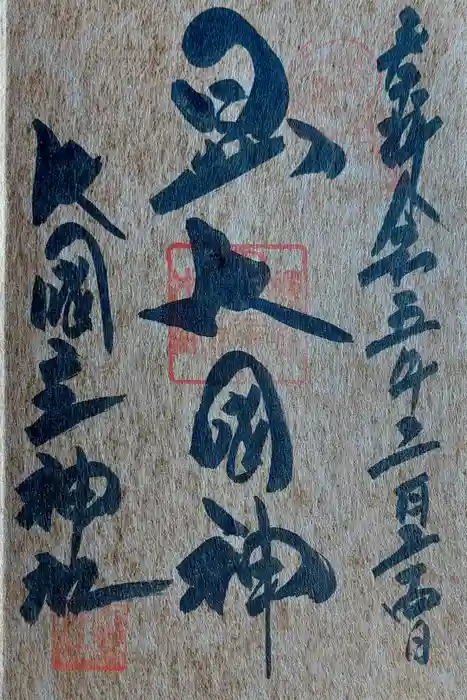 奉拝 令和五年二月二十四日
大国神
大國主神社